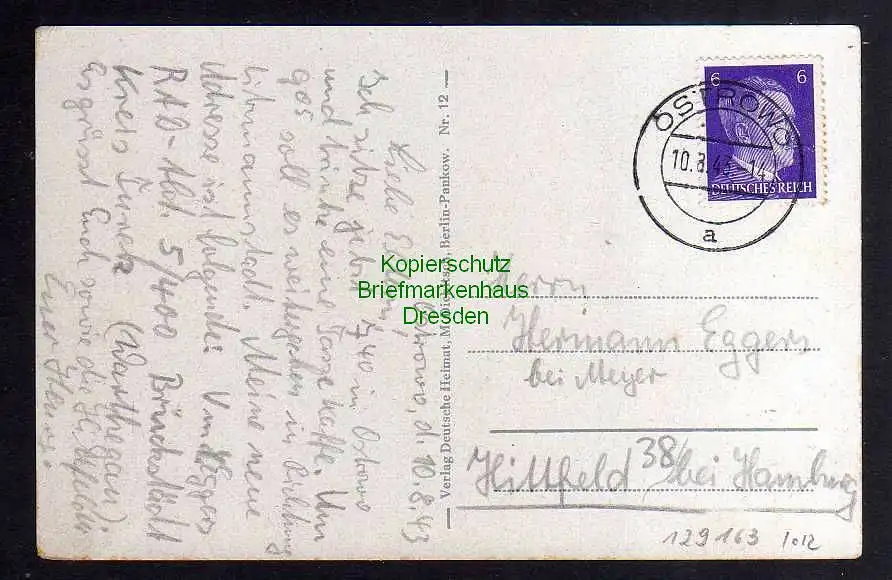 Ostrowo, d. 10.8.43
Liebe Eltern,
Ich sitze jetzt 7 40 in Ostrowo
und trinke eine Tasse Kaffe. Um
9 05 soll es weitergehen in Richtung
Litzmannstadt. Meine neue
Adresse ist folgende: Vm Eggers
RAD-Abt. 5/400 Brückstädt
Kreis Turek (Warthegau).
Es grüsst Euch sowie die
Euer
Verlag Deutsche Heimat, Berlin-Pankow. Nr. 12
6 6
DEUTSCHES REICH
OSTROWO
10.8.43
a
Kopierschutz
Briefmarkenhaus
Dresden
Herrn
Hermann Eggers
bei Meyer
38/
Hittfeld bei Hamburg
129163 1012